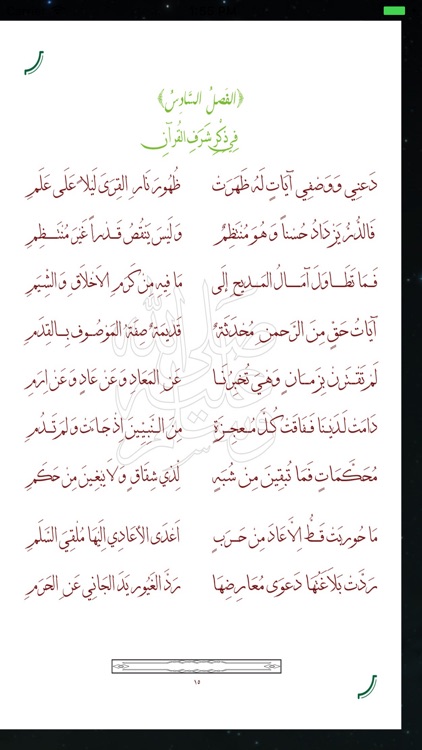 ﴿الفَصْلُ السَّادِسُ﴾
فِي ذِكْرِ شَرَفِ القُرآنِ
دَعْنِي وَوَصْفِي آيَاتٍ لَهُ ظَهَرَتْ ظُهُورَ نَارِ القِرَى لَيْلاً عَلَى عَلَمِ
فَالدُّرُّ يَزْدَادُ حُسْناً وَهُوَ مُنْتَظِمٌ وَلَيْسَ يَنْقُصُ قَدْراً غَيْرَ مُنْتَظِمِ
فَمَا تَطَاوَلَ آمَالُ المَدِيحِ إِلَى مَا فِيهِ مِنْ كَرَمِ الأَخْلَاقِ وَالشِّيَمِ
آيَاتُ حَقٍّ مِنَ الرَّحْمٰنِ مُحْدَثَةٌ قَدِيمَةٌ صِفَةُ المَوْصُوفِ بِالقِدَمِ
لَمْ تَقْتَرِنْ بِزَمَانٍ وَهْيَ تُخْبِرُنَا عَنِ المَعَادِ وَعَنْ عَادٍ وَعَنْ إِرَمِ
دَامَتْ لَدَيْنَا فَفَاقَتْ كُلَّ مُعْجِزَةٍ مِنَ النَّبِيِّينَ إِذْ جَاءَتْ وَلَمْ تَدُمِ
مُحَكَّمَاتٍ فَمَا تُبْقِينَ مِنْ شُبَهٍ لِذِي شِقَاقٍ وَلَا يَبْغِينَ مِنْ حَكَمِ
مَا حُورِبَتْ قَطُّ إِلَّا عَادَ مِنْ حَرَبٍ أَعْدَى الأَعَادِي إِلَيْهَا مُلْقِيَ السَّلَمِ
رَدَّتْ بَلَاغَتُهَا دَعْوَى مُعَارِضِهَا رَدَّ الغَيُورِ يَدَ الجَانِي عَنِ الحَرَمِ
١٥